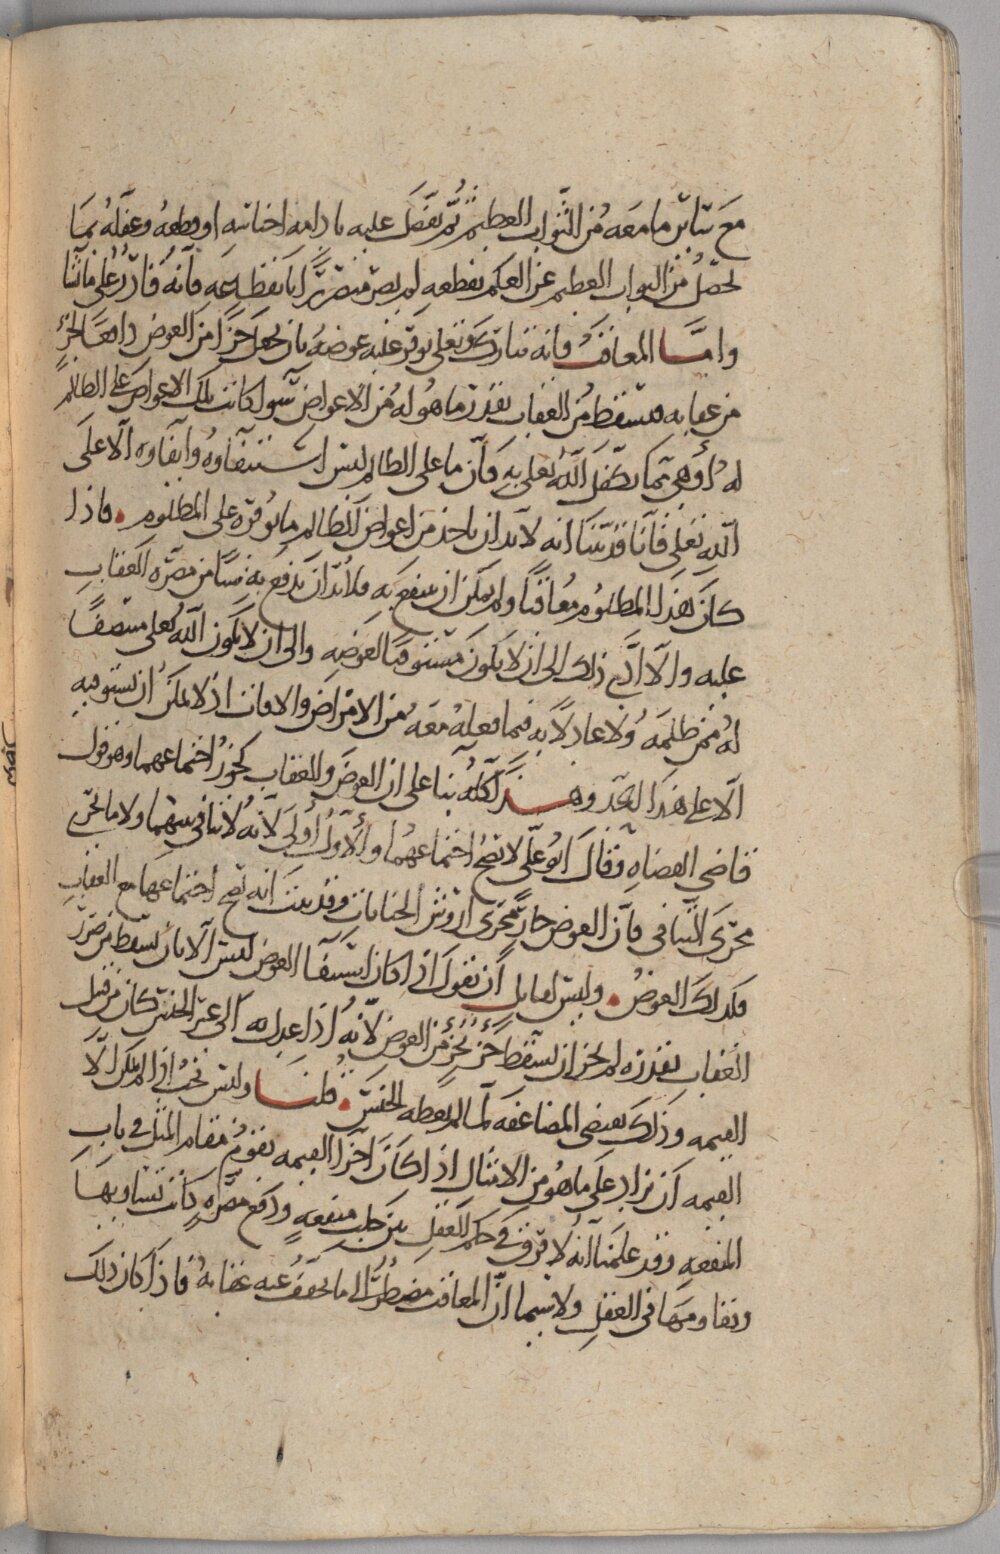 مع سائر ما معه من الثواب العظيم ثم تفضل عليه بادامه احيائه او قطعه وعقله بما
يحصل من الثواب العظيم عن العلم بقطعه لم يصر متضررا بانقطاعه فانه قادر على ما شا
واما المعاقب فانه تبارك وتعلى يوفر عليه عوضه بان يجعل جزا من العوض دافعا لجزء
من عقابه فيسقط من العقاب بقدر ما هو له من الاعواض سوا كانت تلك الاعواض على الظالم
له او هي مما تكفل الله تعلى به فان ما على الظالم ليس استيفاوه وايفاوه الا على
الله تعلى فانا قد بينا انه لا بد ان ياخذ من اعواض الظالم ما يوفره على المظلوم . فاذا
كان هذا المظلوم معاقبا ولم يمكن ان ينتفع به فلا بد ان يدفع به شيا من مضره العقاب
عليه والا ادى ذلك الى ان لا يكون مستوفيا لعوضه والى ان لا يكون الله تعلى منتصفا
له ممن ظلمه ولا عادلا به فيما فعله معه من الامراض والافات اذ لا يمكن ان يستوفيه
الا على هذا الحد وهذا كله بنا على ان العوض والعقاب يجوز اجتماعهما وهو قول
قاضي القضاه وقال ابو علي لا يصح اجتماعهما والاول اولى لانه لا تنافي بينهما ولا ما يجري
مجرى التنافي فان العوض جار مجرى اروش الجنايات وقد بينت انه يصح اجتماعها مع العقاب
فكذلك العوض . وليس لقايل ان يقول اذا كان استيفا العوض ليس الا بان يسقط من ضرر
العقاب بقدره لم يجز ان يسقط جزء بجزء من العوض لانه اذا عدل به الى غير الجنس كان من قبل
القيمه وذلك يقتضي المضاعفه لما لم يعطه الجنس . قلنا وليس يجب اذا لم يكن الا
القيمه ان يزاد على ما هو من الامثال اذا كان اجزا القيمه يقوم مقام المثل في باب
المنفعه وقد علمنا انه لا فرق في حكم العقل بين جلب منفعه ودفع مضره كانت تساويها
وتقاومها في العقل ولا سيما ان المعاقب مضطر الى ما يخفف عنه عقابه فاذا كان ذلك